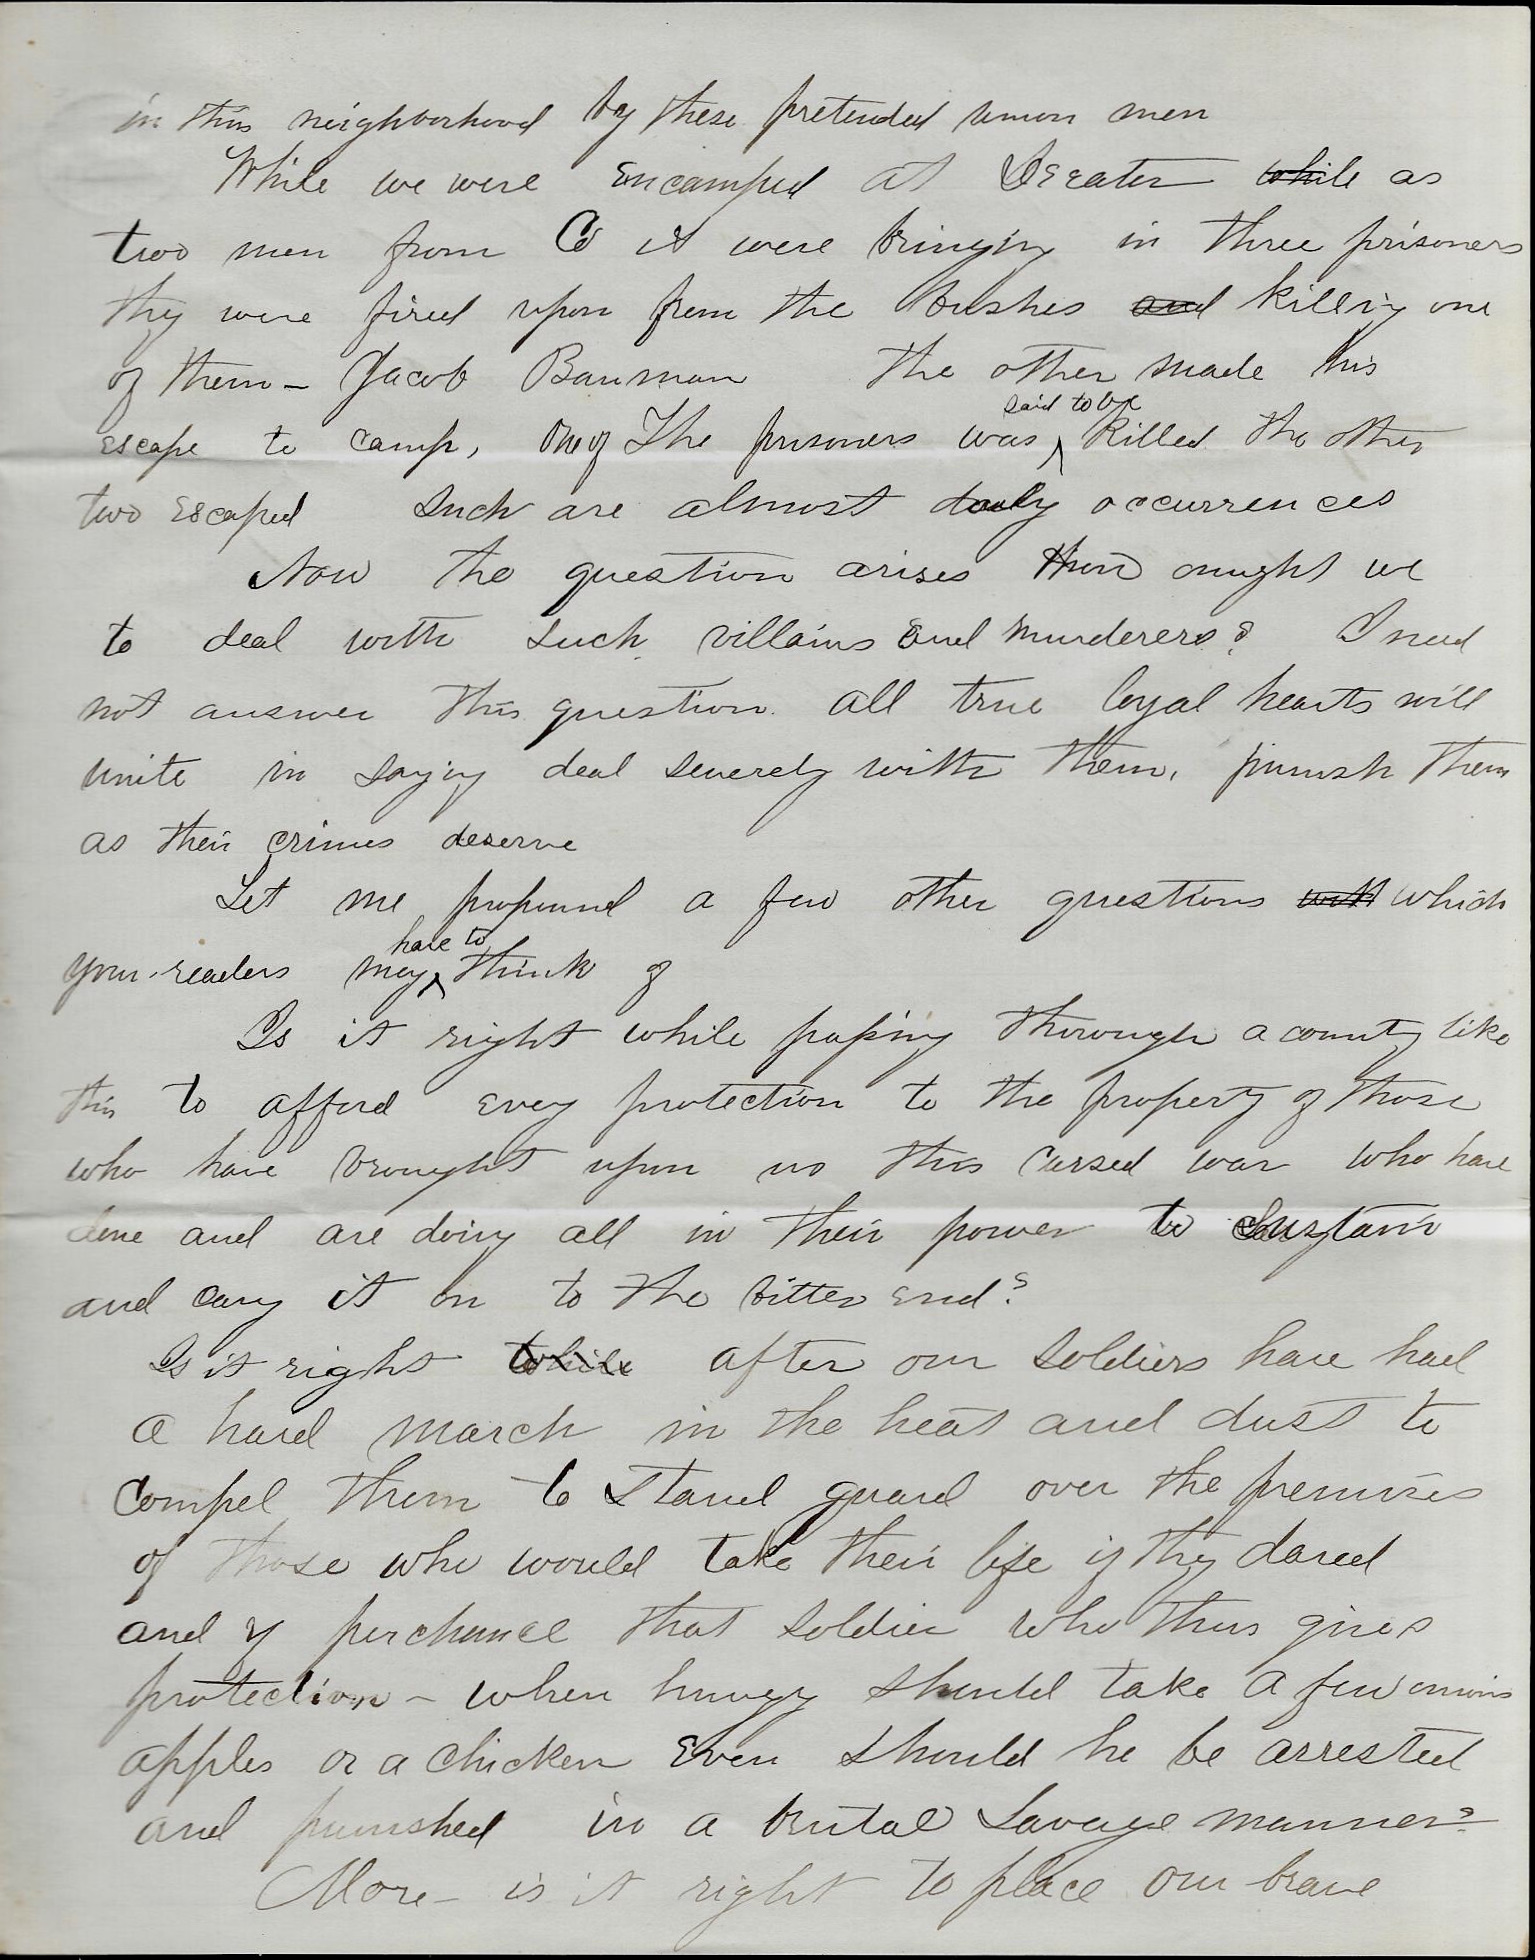 in this neighborhood by these pretended union men
While we were encamped at Decater while as
two men from Co A were bringing in three prisoners
thy were fired upon from the bushes and killing one
of them – Jacob Bauman The other made his
said to be
escape to camp, One of The prisoners was ^ killed the other
two escaped Such are almost daily occurrences
Now the question arises How ought we
to deal with such villains and murderers? I need
not answer this question all true loyal hearts will
unite in saying deal severely with them, punish them
as their crimes deserve
Let me propound a few other questions with which
have to
your readers may ^ think of
Is it right while passing thorough a county like
this to afford evey protection to the property of those
who have brought upon us this cursed war who have
done and are doing all in their power to sustain
and cary it on to the bitter end?
Is it right while after our soldiers have had
a hard march in the heat and dust to
compel them to stand guard over the premises
of those who would take their life if thy dared
and if perchance that soldier who thus gives
protection – when hungy should take a few onions
apples or a chicken even should he be arrested
and punished in a brutal savage manner?
More – is it right to place our brave